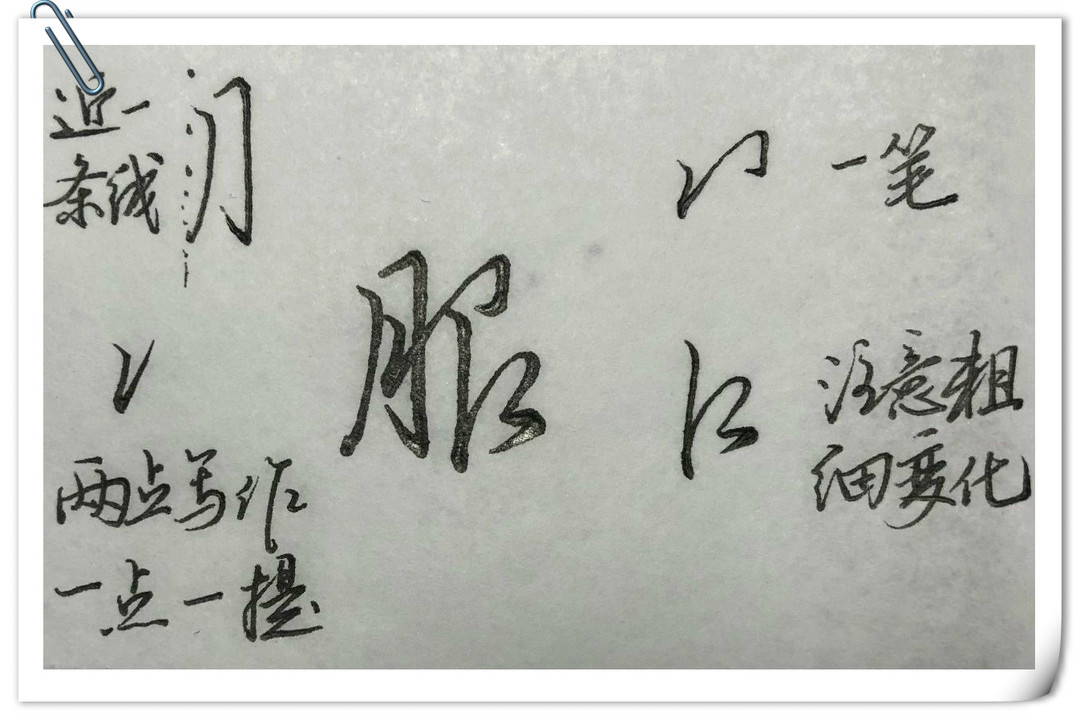 近一
条线
服
一笔
注意粗
细变化
两点写作
一点一提